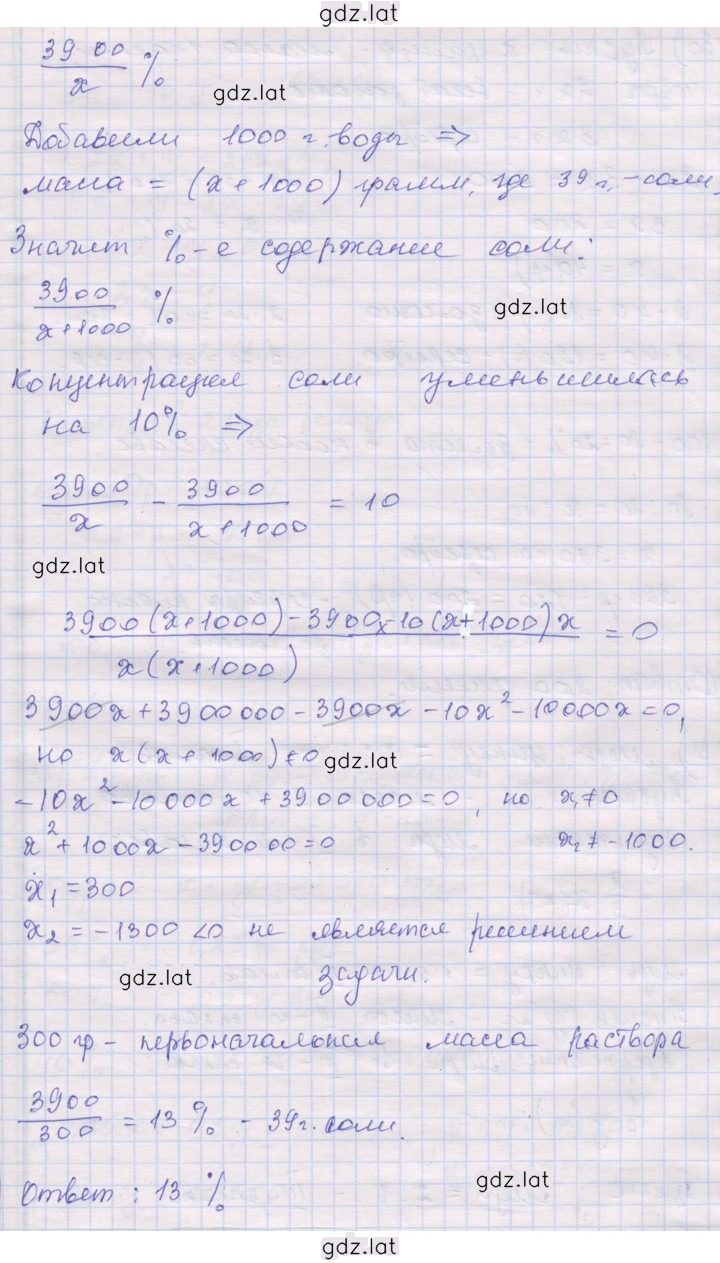 gdz.lat
3900/x %
gdz.lat
Добавили 1000 г. воды ⇒
масса = (x + 1000) грамм, где 39 г. - соли.
Значит %-е содержание соли:
3900/(x+1000) %
gdz.lat
Концентрация соли уменьшилась
на 10% ⇒
3900/x - 3900/(x+1000) = 10
gdz.lat
(3900(x+1000) - 3900x - 10(x+1000)x)/(x(x+1000)) = 0
3900x + 3900000 - 3900x - 10x² - 10000x = 0,
но x(x+1000) ≠ 0
gdz.lat
-10x² - 10000x + 3900000 = 0, но x₁ ≠ 0
x² + 1000x - 390000 = 0 x₂ ≠ -1000.
x₁ = 300
x₂ = -1300 < 0 не является решением
gdz.lat
задачи.
300 гр - первоначальная масса раствора
3900/300 = 13 % - 39 г. соли.
gdz.lat
Ответ: 13 %
gdz.lat